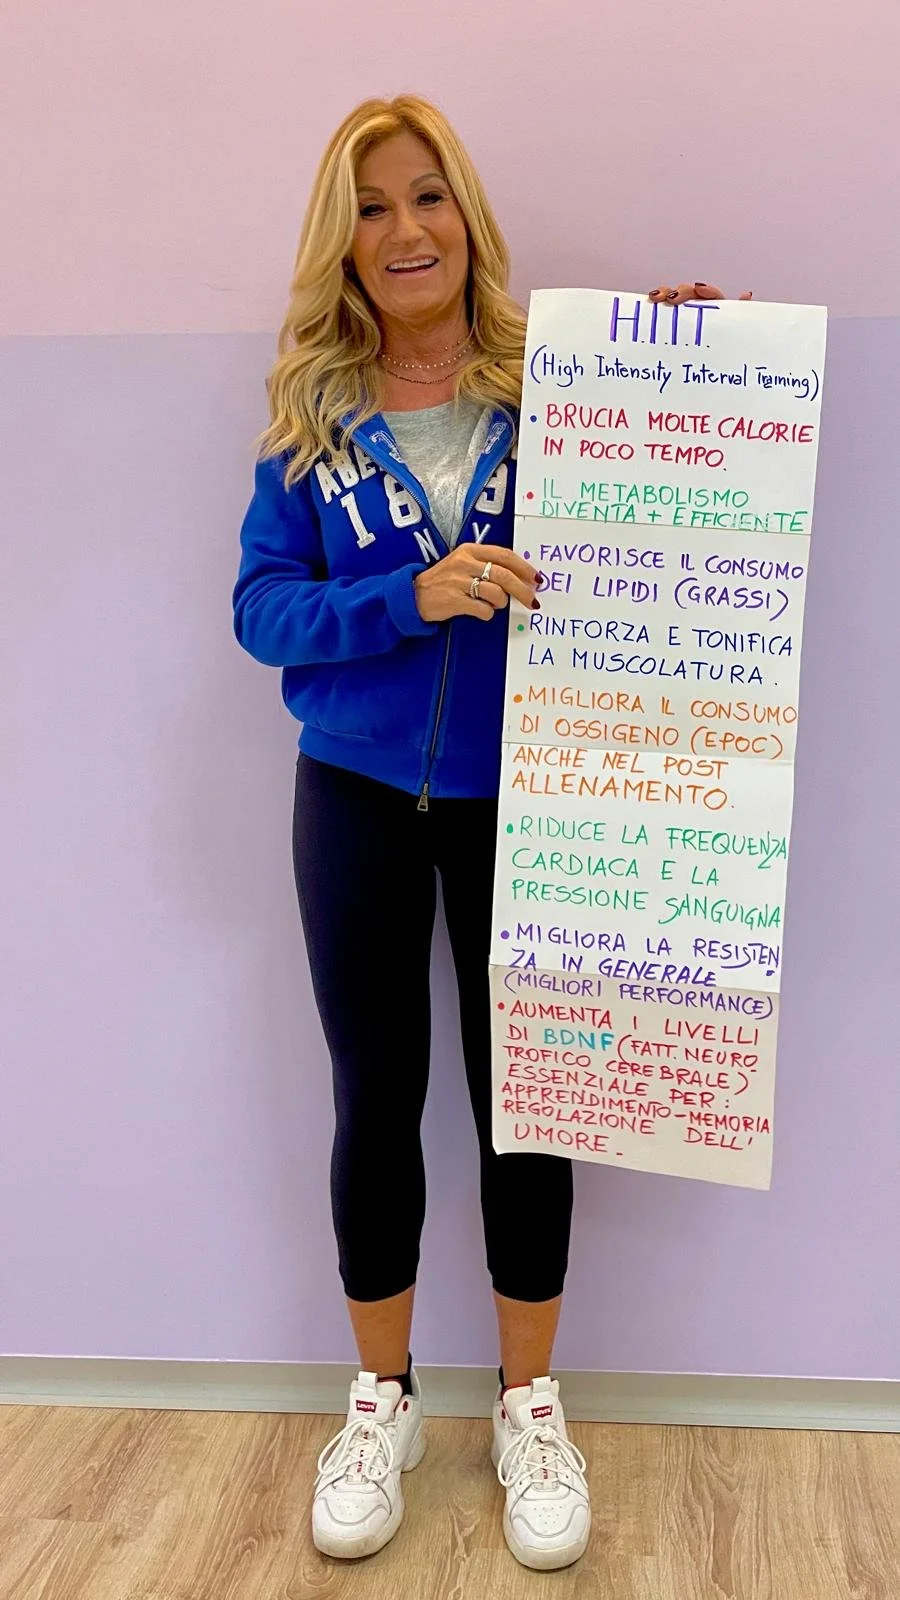 ABE
189
N Y
H.I.I.T.
(High Intensity Interval Training)
• BRUCIA MOLTE CALORIE
IN POCO TEMPO.
• IL METABOLISMO
DIVENTA + EFFICIENTE
• FAVORISCE IL CONSUMO
DEI LIPIDI (GRASSI)
• RINFORZA E TONIFICA
LA MUSCOLATURA.
• MIGLIORA IL CONSUMO
DI OSSIGENO (EPOC)
ANCHE NEL POST
ALLENAMENTO.
• RIDUCE LA FREQUENZA
CARDIACA E LA
PRESSIONE SANGUIGNA
• MIGLIORA LA RESISTEN
ZA IN GENERALE.
(MIGLIORI PERFORMANCE)
• AUMENTA I LIVELLI
DI BDNF (FATT. NEURO-
TROFICO CEREBRALE)
ESSENZIALE PER:
APPRENDIMENTO-MEMORIA
REGOLAZIONE DELL'
UMORE.
LEVI'S
LEVI'S